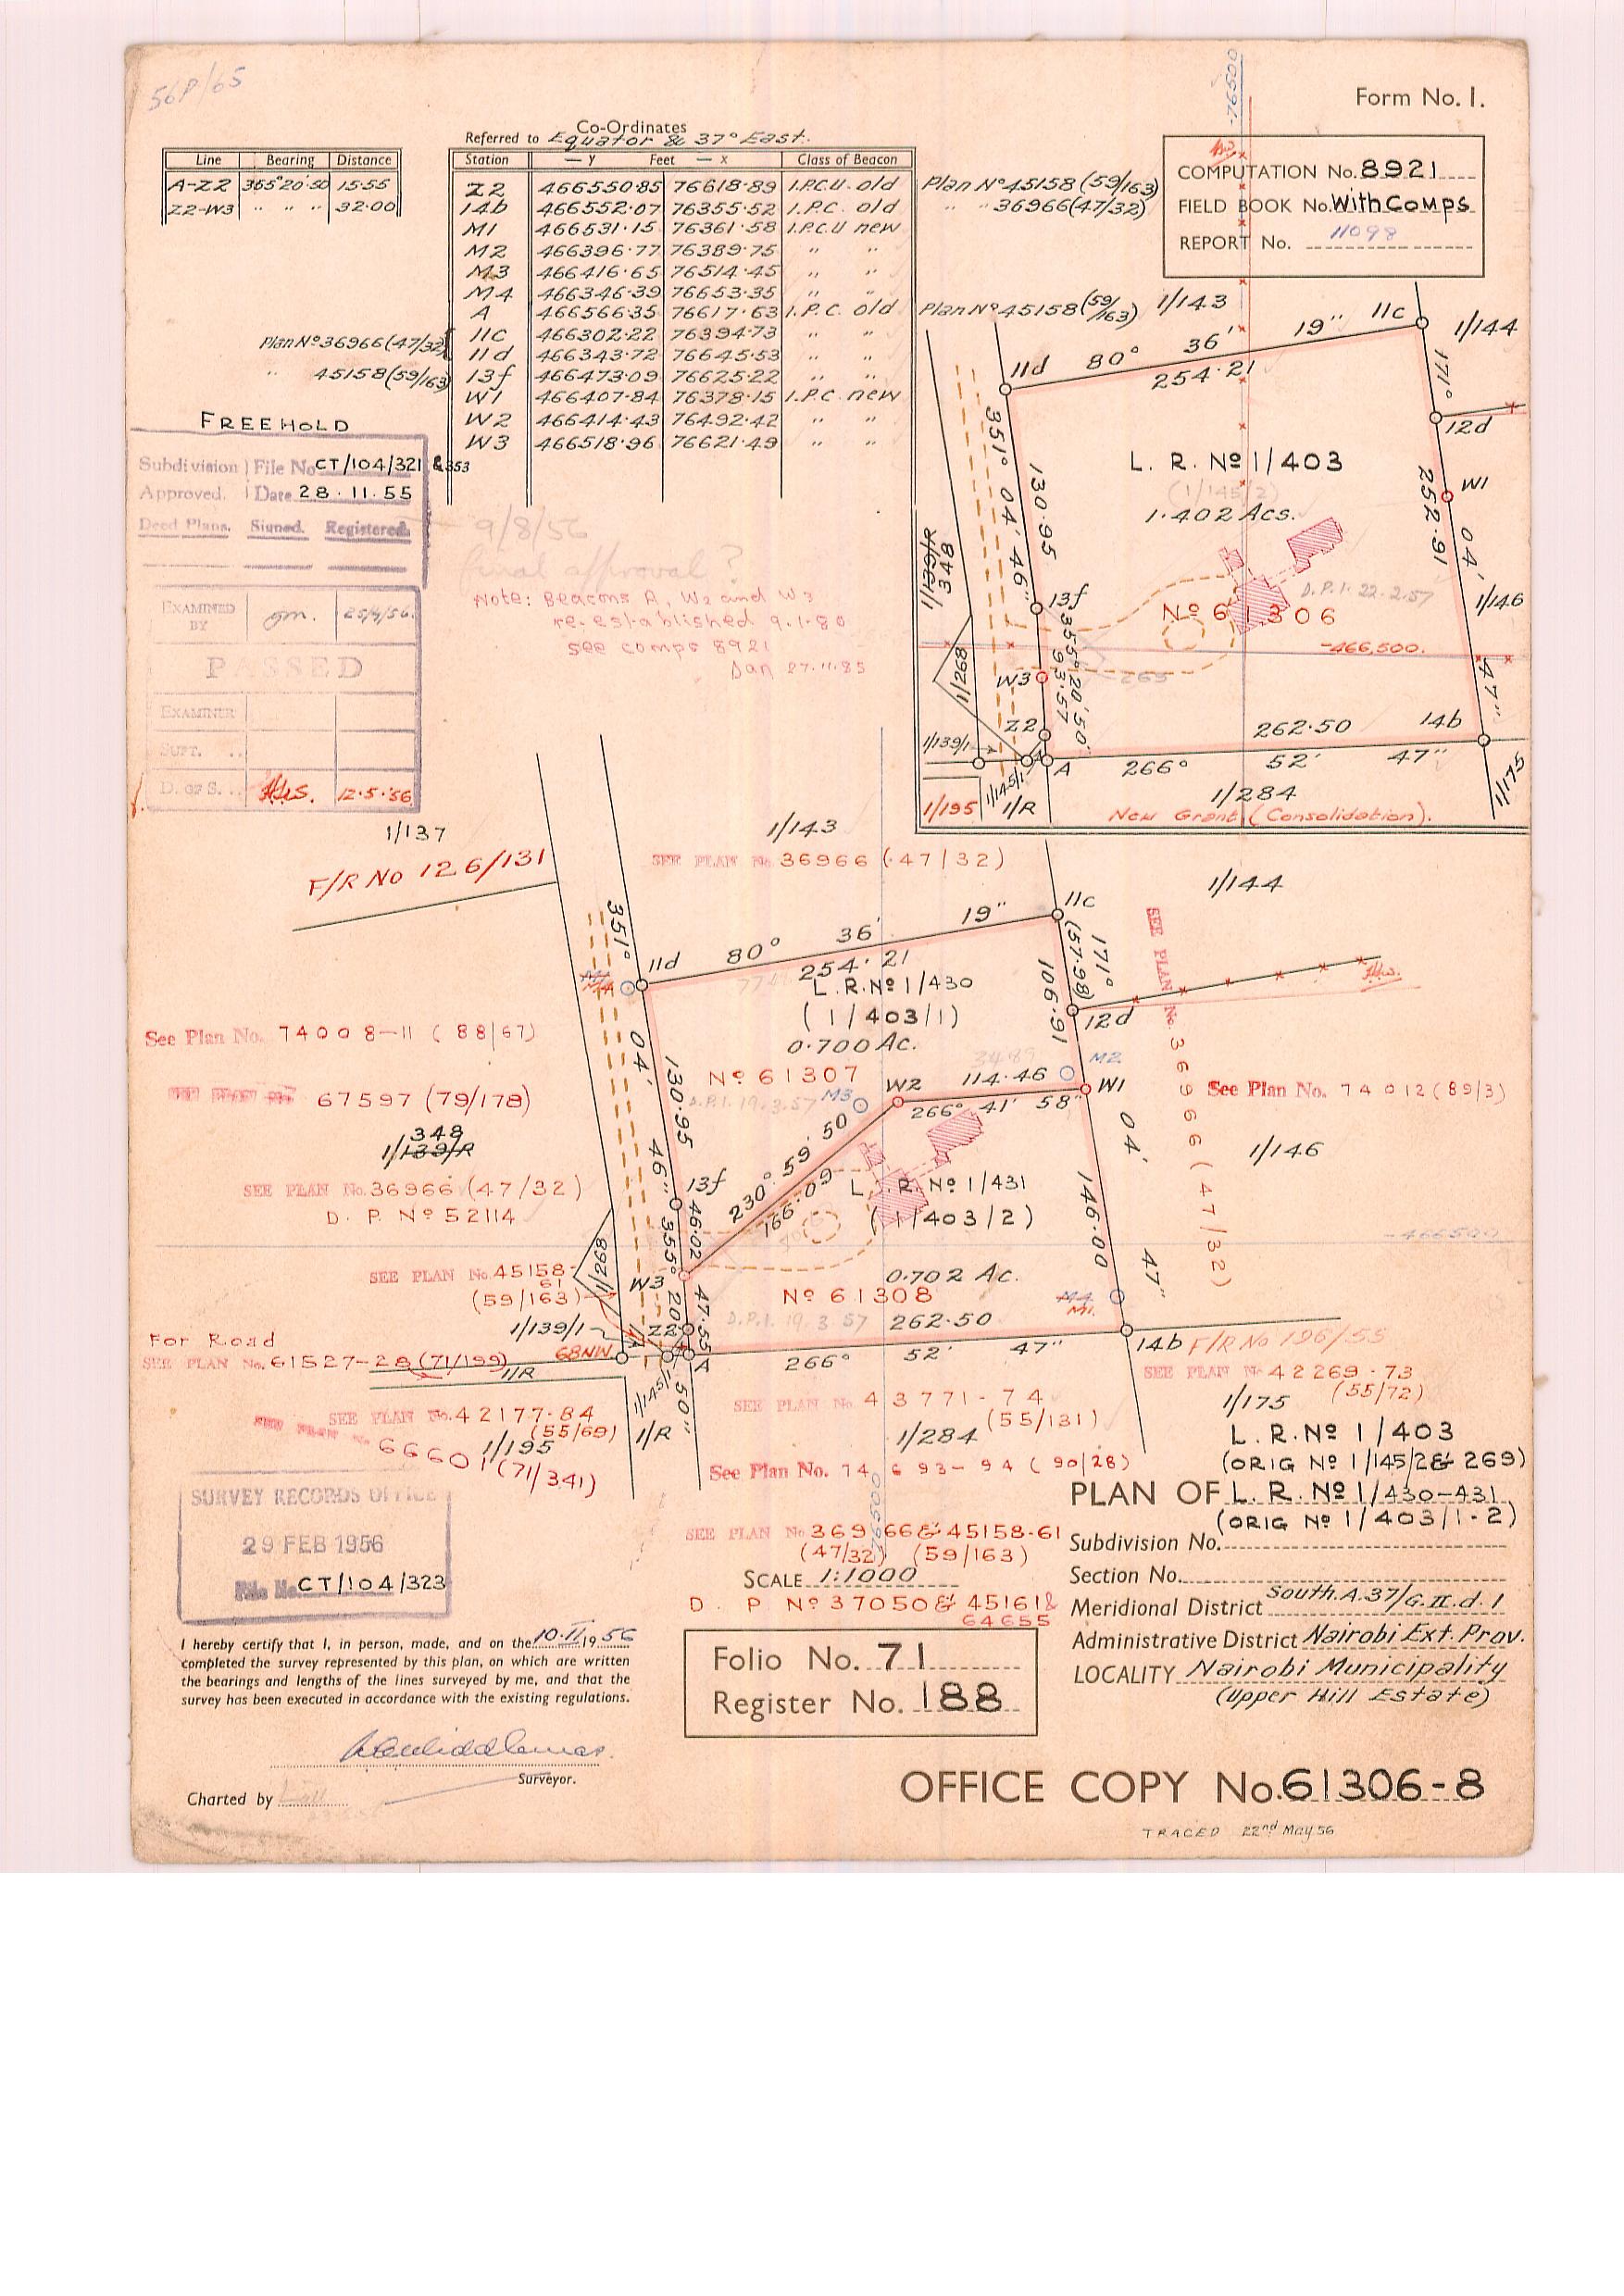 56P/65
Form No. 1.
Co-Ordinates
Referred to Equator & 37° East.
Line Bearing Distance
A-Z2 355°20'50 15·55
Z2-W3 " " " 32·00
Station — y Feet — x Class of Beacon
Z2 466550·85 76618·89 I.P.C.U. old Plan Nº 45158 (59/163)
14b 466552·07 76355·52 I.P.C. old " " 36966 (47/32)
M1 466531·15 76361·58 I.P.C.U new
M2 466396·77 76389·75 " "
M3 466416·65 76514·45 " "
M4 466346·39 76653·35 " "
A 466566·35 76617·63 I.P.C. old Plan Nº 45158 (59/163)
Plan Nº 36966 (47/32) 11c 466302·22 76394·73 " "
11d 466343·72 76645·53 " "
" 45158 (59/163) 13f 466473·09 76625·22 " "
W1 466407·84 76378·15 I.P.C. new
W2 466414·43 76492·42 " "
W3 466518·96 76621·49 " "
COMPUTATION No. 8921
FIELD BOOK No. With Comps
REPORT No. 11098
FREEHOLD
Subdivision File No CT/104/321 & 353
Approved. Date 28.11.55
Deed Plans. Signed. Registered.
EXAMINED BY 25/4/56.
PASSED
EXAMINER
SUPT. ..
D. OF S. .. 12·5·'56
9/8/56
final approval?
Note: Beacons A, W2 and W3
re-established 9.1.80
see comps 8921
Dan 27.11.85
76500
1/143
11c
1/144
11d
80° 36' 19"
254·21
171°
12d
351° 04' 46"
130·95
L. R. Nº 1/403
(1/145/2)
1·402 Acs.
W1
252·91
04'
1/139/R
348
13f
D.P.I. 22.2.57
Nº 61306
1/146
-466,500.
1/268
W3
355°20'50"
93·57
265
47"
Z2
262·50
14b
1/139/1
A
266° 52' 47"
1/284
1/175
1/195
1/145/1
1/R
New Grant (Consolidation).
1/137
F/R No 126/131
1/143
SEE PLAN No. 36966 (47/32)
1/144
351°
11d
80° 36' 19"
254·21
11c
(57·98)
171°
106·91
L.R. Nº 1/430
(1/403/1)
0·700 Ac.
12d
SEE PLAN No. 36966 (47/32)
See Plan No. 74008-11 (88/67)
04'
130·95
Nº 61307
D.P.I. 19.3.57
M3
W2
34·89
114·46
M2
W1
266° 41' 58"
See Plan No. 74012 (89/3)
67597 (79/178)
348
1/139/R
46"
230° 59' 50
166·09
04'
1/146
SEE PLAN No. 36966 (47/32)
D. P. Nº 52114
13f
46·02
L. R. Nº 1/431
(1/403/2)
146·00
-466500
355°
SEE PLAN No. 45158-61
(59/163)
1/268
W3
0·702 Ac.
Nº 61308
D.P.I. 19.3.57
47"
20'
47·55
262·50
1/139/1
Z2
For Road
SEE PLAN No. 61527-28 (71/199)
68NW
1/R
A
266° 52' 47"
14b
F/R No 126/55
SEE PLAN No 42269-73
(55/72)
50"
1/145/1
SEE PLAN No. 42177-84
(55/69)
SEE PLAN No. 43771-74
(55/131)
1/175
6660 (71/341)
1/195
1/R
1/284
See Plan No. 74693-94 (90/28)
L. R. Nº 1/403
(ORIG Nº 1/145/2 & 269)
PLAN OF L. R. Nº 1/430-431
(ORIG Nº 1/403/1-2)
SURVEY RECORDS OFFICE
29 FEB 1956
File No. CT/104/323
76500
SEE PLAN No 36966 & 45158-61
(47/32) (59/163)
SCALE 1:1000
D. P Nº 37050 & 45161 &
64655
Subdivision No.
Section No.
Meridional District South.A.37/G.II.d.1
Administrative District Nairobi Ext. Prov.
LOCALITY Nairobi Municipality
(Upper Hill Estate)
I hereby certify that I, in person, made, and on the 10.II.1956
completed the survey represented by this plan, on which are written
the bearings and lengths of the lines surveyed by me, and that the
survey has been executed in accordance with the existing regulations.
Surveyor.
Charted by
Folio No. 71
Register No. 188
OFFICE COPY No. 61306-8
TRACED 22nd May 56